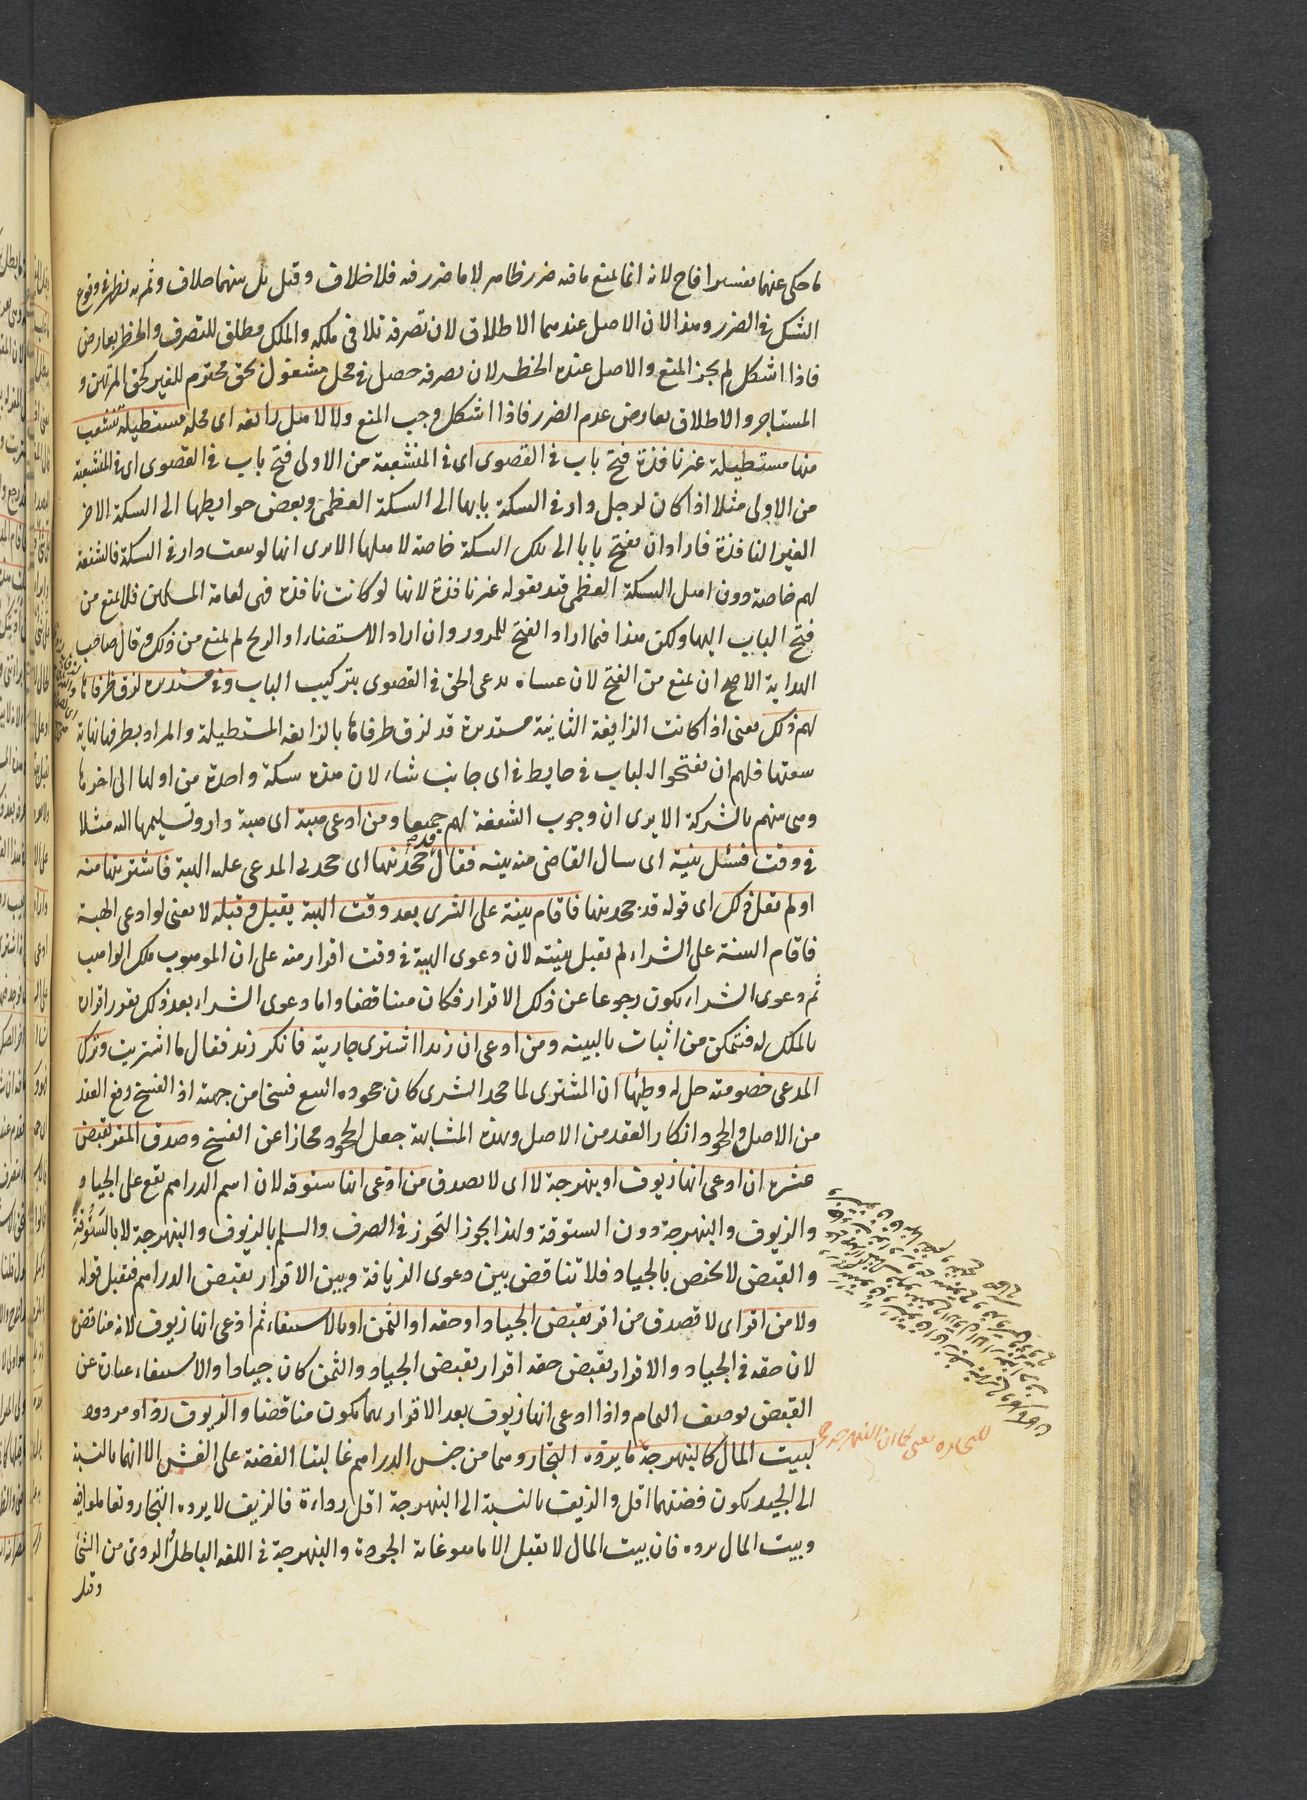 ما حكى عنهما تفسيرا فاح لانه انما يمنع ما فيه ضرر ظاهر لا ما ضرر فيه فلا خلاف وقيل بل بينهما خلاف وثمرته تظهر في وقوع
الشك في الضرر وهذا لان الاصل عندهما الاطلاق لان تصرفه تلاقى ملكه والملك مطلق للتصرف والحظر بعارض
فاذا اشكل لم يجز المنع والاصل عنده الحظر لان تصرفه حصل في محل مشغول بحق محترم للغير كحق المرتهن و
المستاجر والاطلاق بعارض عدم الضرر فاذا اشكل وجب المنع ولا لاهل زائغه اى محلة مستطيلة تنشعب
منها مستطيلة غير نافذة فتح باب في القصوى اى في المنشعبة من الاولى فتح باب في القصوى اى في المنشعبة
من الاولى مثلا اذا كان لرجل دار في السكة بابها الى السكة العظمى وبعض حوايطها الى السكة الاخر
الغير النافذة فاراد ان يفتح بابا الى تلك السكة خاصة لاهلها الا يرى انها لو بيعت دار في السكة فالشفعة
لهم خاصة دون اهل السكة العظمى قيد بقوله غير نافذة لانها لو كانت نافذة فهى لعامة المسلمين فلا يمنع من
فتح الباب اليها ولكن هذا فيما اراد الفتح للمرور وان اراد الاستضاءة او الريح لم يمنع من ذلك وقال صاحب
الهداية الاصح ان يمنع من الفتح لان عساه يدعى الحق في القصوى بتركيب الباب وفي مستديرة لزق طرفاها
لهم ذلك يعنى اذا كانت الزايغة الثانية مستديرة قد لزق طرفاها بالزايغة المستطيلة والمراد بطرفها نهاية
سعتها فلهم ان يفتحوا الباب في حايط في اى جانب شاء لان هذه سكة واحدة من اولها الى اخرها
وهى بينهم بالشركة الا يرى ان وجوب الشفعة لهم جميعا ومن ادعى هبة اى هبة دار وتسليمها اليه مثلا
في وقت فسئل بينة اى سال القاضى منه بينة فقال جحدنيها اى جحدنى المدعى عليه الهبة فاشتريتها منه
او لم يقل ذلك اى قوله قد جحدنيها فاقام بينة على الشرى بعد وقت الهبة يقبل وقبله لا يعنى لو ادعى الهبة
فاقام البينة على الشراء لم تقبل بينته لان دعوى الهبة في وقت اقرار منه على ان الموهوب ملك الواهب
ثم دعوى الشراء يكون رجوعا عن ذلك الاقرار فكان متناقضا واما دعوى الشراء بعد ذلك يقرر اقراره
بالملك له فيتمكن من اثبات بالبينة ومن ادعى ان زيدا اشترى جاريته فانكر زيد فقال ما اشتريت وترك
المدعى خصومته حل له وطيئها ان المشترى لما جحد الشرى كان جحوده البيع فسخا من جهته اذ الفسخ رفع العقد
من الاصل والجحود انكار العقد من الاصل وبهذه المشابهة جعل الجحود مجازا عن الفسخ وصدق المقر بقبض
عشرة ان ادعى انها زيوف او بنهرجة لا اى لا يصدق من ادعى انها ستوقة لان اسم الدراهم يقع على الجياد
والزيوف والبنهرجة دون الستوقة ولهذا لجوز التجوز في الصرف والسلم بالزيوف والبنهرجة لا بالستوقة
والقبض لا يختص بالجياد فلا تناقض بين دعوى الزيافة وبين الاقرار بقبض الدراهم فيقبل قوله
ولا من اقر اى لا يصدق من اقر بقبض الجياد او حقه او الثمن او بالاستيفاء ثم ادعى انها زيوف لانه مناقض
لان حقه في الجياد والاقرار بقبض حقه اقرار بقبض الجياد والثمن كان جيادا والاستيفاء عبارة عن
القبض بوصف التمام واذا ادعى انها زيوف بعد الاقرار بهما يكون مناقضا والزيوف رذاو مردود
لبيت المال كالبنهرجة ما يرده التجار وهما من جنس الدراهم غالبتا الفضة على الغش الا انهما بالنسبة
الى الجيد يكون فضتهما اقل والزيف بالنسبة الى البنهرجة اقل رداءة فالزيف لا يرده التجار وتعاملوا فيه
وبيت المال يرده فان بيت المال لا تقبل الا ما هو غاية الجودة والبنهرجة في اللغة الباطل والردئ من الشئ
وقيل
للتجارة يعنى كما ان البنهرجة